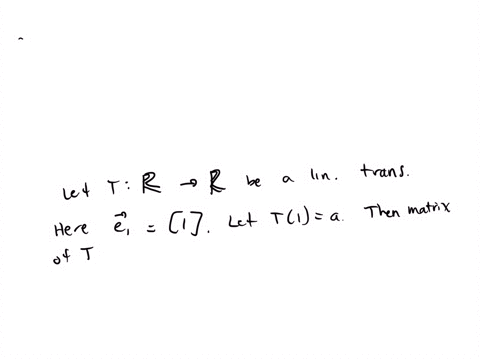 Let T: ℝ → ℝ be a lin. trans.
Here e⃗₁ = [1]. Let T(1) = a. Then matrix
of T